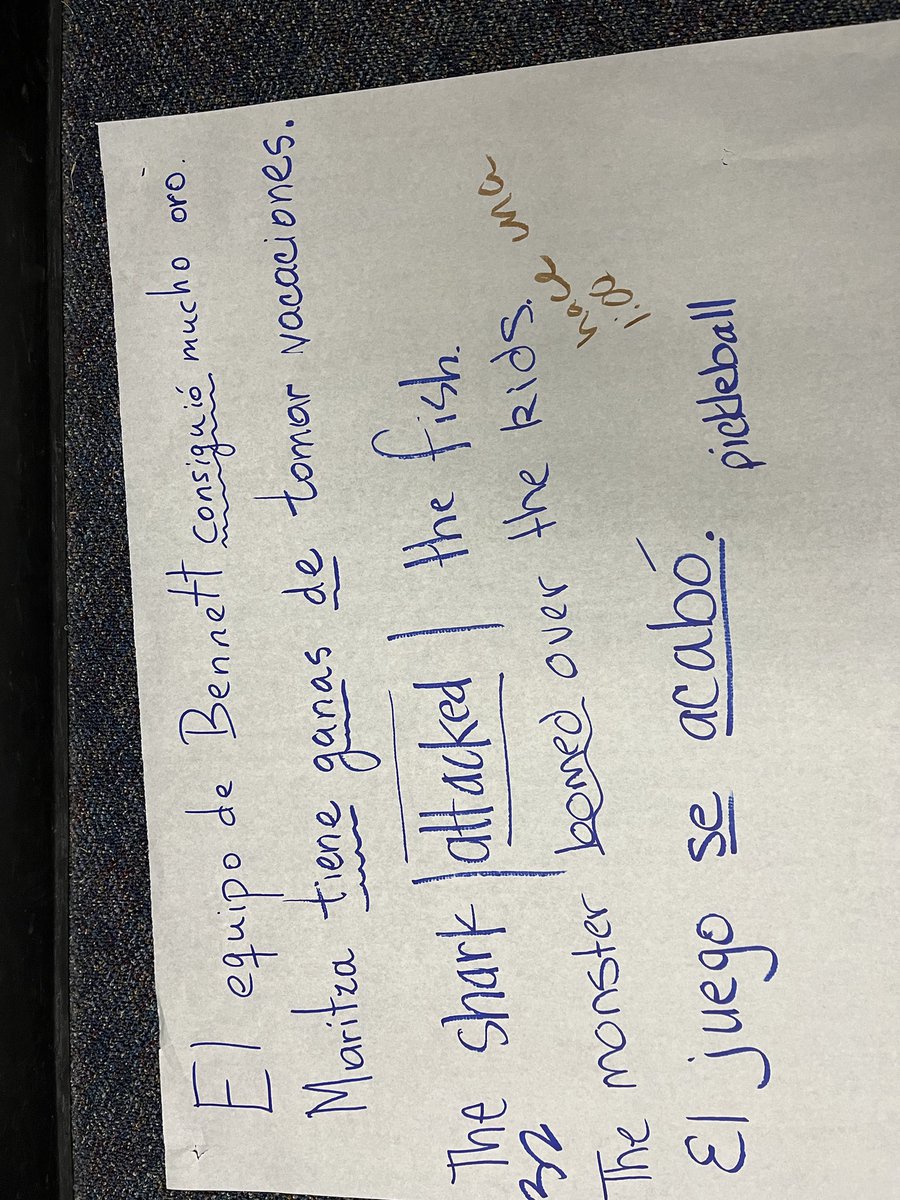 El equipo de Bennett consiguió mucho oro.
Maritza tiene ganas de tomar vacaciones.
The shark attacked the fish.
32
The monster over the kids.
El juego se acabó. pickleball